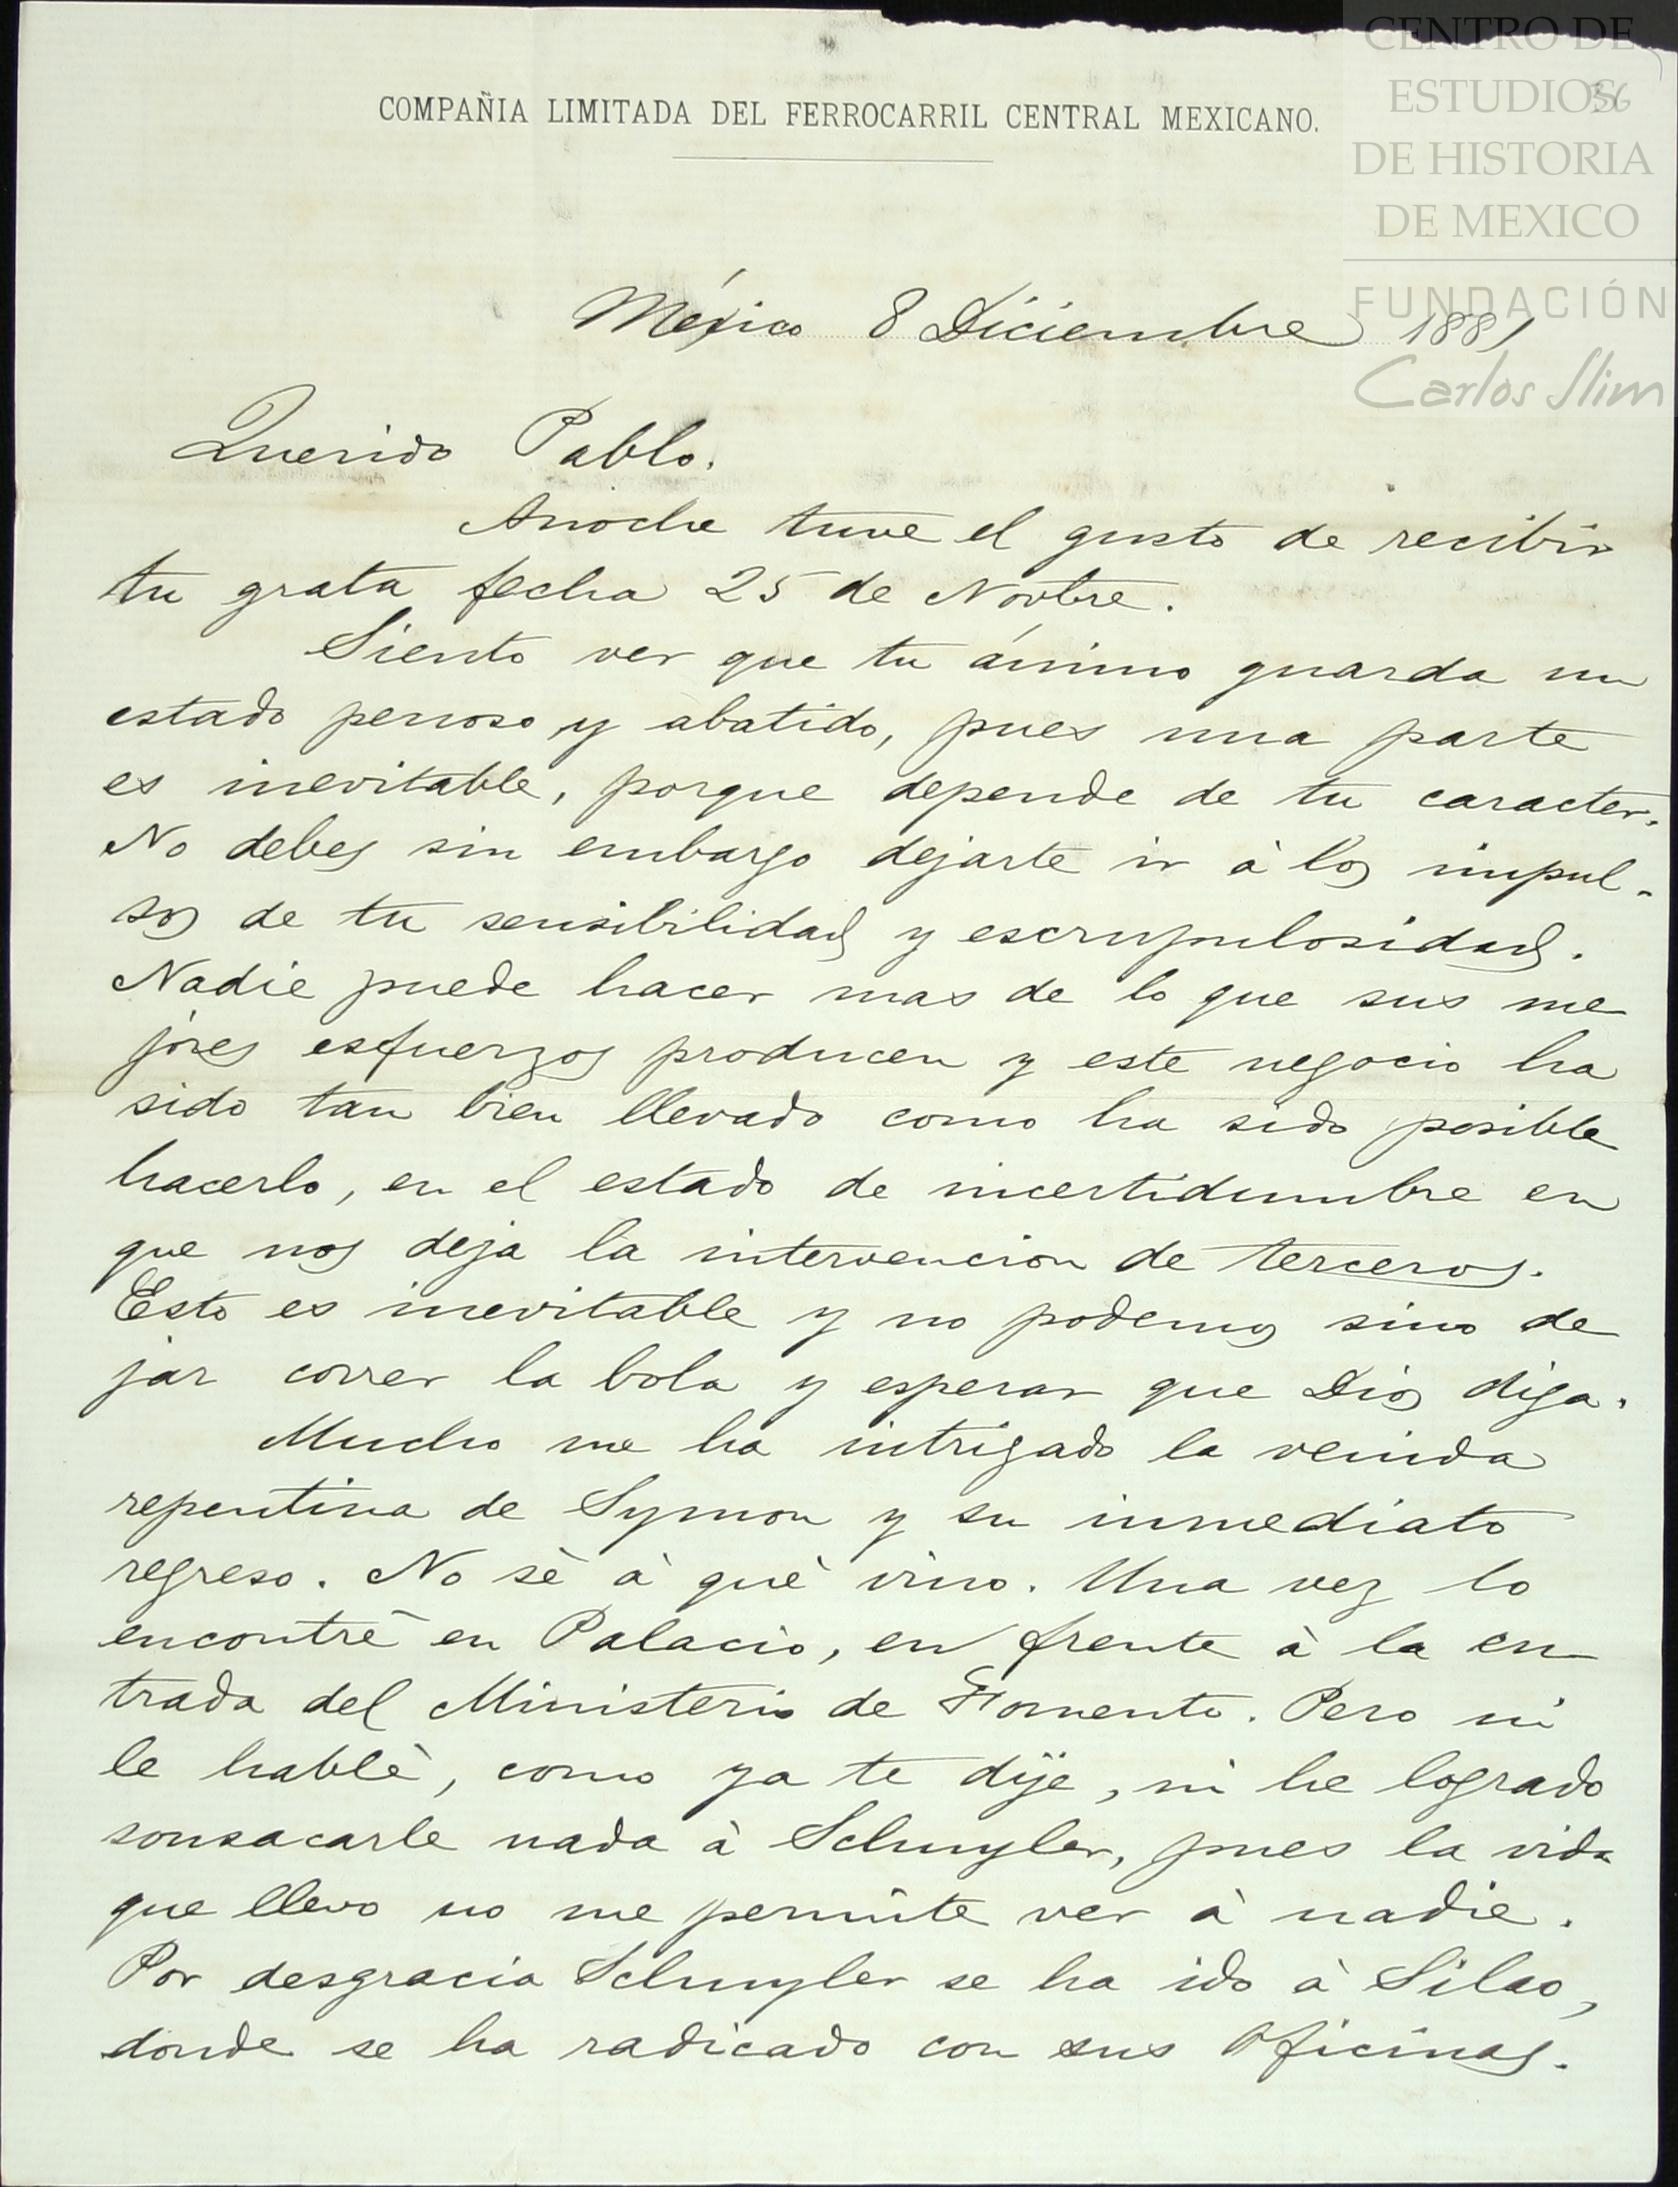 CENTRO DE
ESTUDIOS
DE HISTORIA
DE MEXICO
FUNDACIÓN
Carlos Slim
36
COMPAÑIA LIMITADA DEL FERROCARRIL CENTRAL MEXICANO.
México 8 Diciembre 1881
Querido Pablo.
Anoche tuve el gusto de recibir
tu grata fecha 25 de Novbre.
Siento ver que tu ánimo guarda un
estado penoso y abatido, pues una parte
es inevitable, porque depende de tu caracter.
No debes sin embargo dejarte ir à los impul-
sos de tu sensibilidad y escrupulosidad.
Nadie puede hacer mas de lo que sus me
jores esfuerzos producen y este negocio ha
sido tan bien llevado como ha sido posible
hacerlo, en el estado de incertidumbre en
que nos deja la intervencion de terceros.
Esto es inevitable y no podemos sino de
jar correr la bola y esperar que Dios diga.
Mucho me ha intrigado la venida
repentina de Symon y su inmediato
regreso. No sè à què vino. Una vez lo
encontrè en Palacio, en frente à la en
trada del Ministerio de Fomento. Pero ni
le hablè, como ya te dije, ni he logrado
sonsacarle nada à Schuyler, pues la vida
que llevo no me permite ver à nadie.
Por desgracia Schuyler se ha ido à Silao,
donde se ha radicado con sus Oficinas.